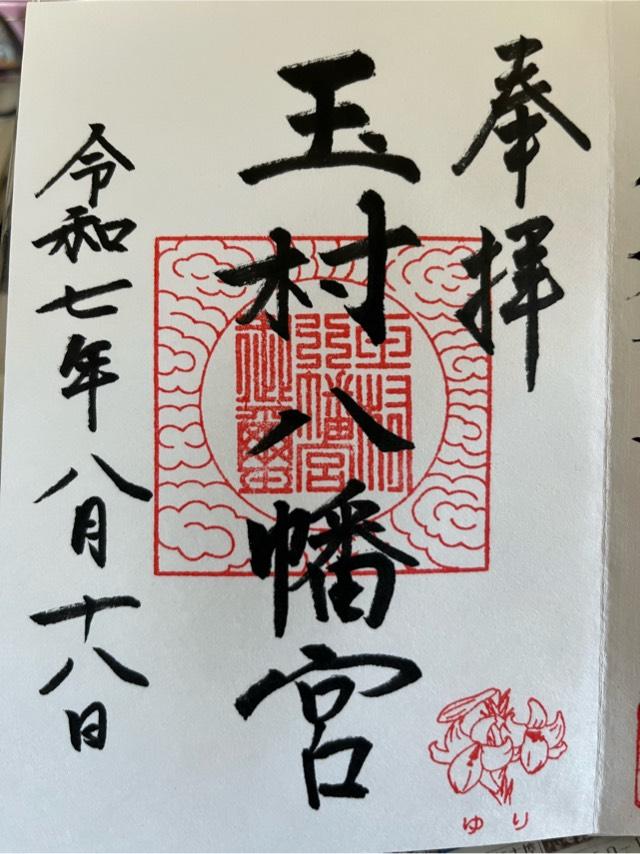 奉拝
玉村八幡宮
令和七年八月十八日
ゆり